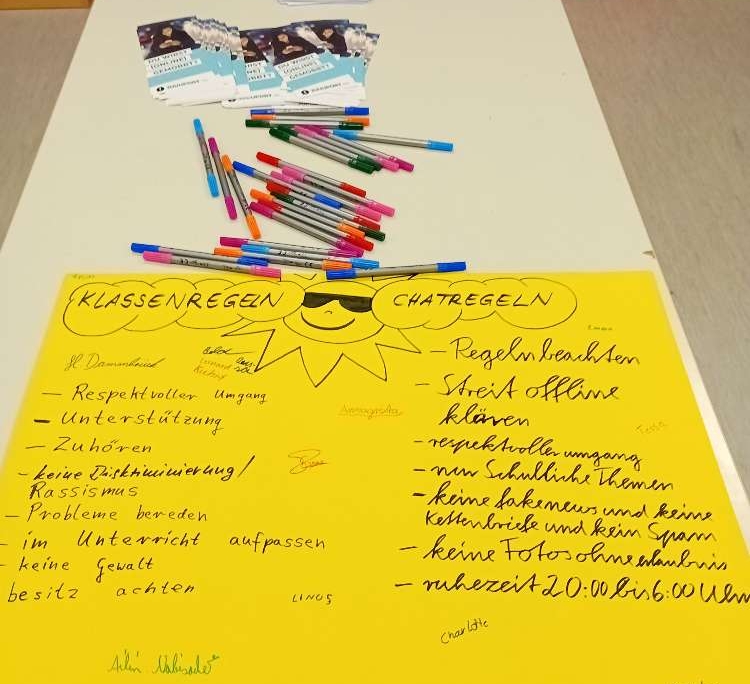 DU WIRST
(ONLINE)
GEMOBBT?
DU WIRST
(ONLINE)
GEMOBBT?
KLASSENREGELN
CHATREGELN
H. Dammbrück
- Respektvoller Umgang
- Unterstützung
- Zuhören
- keine Diskriminierung/
Rassismus
- Probleme bereden
- im Unterricht aufpassen
- keine Gewalt
besitz achten
LINUS
Emma
- Regeln beachten
- Streit offline
klären
Tessa
- respektvoller umgang
- nur Schulliche Themen
- keine fakenews und keine
Kettenbriefe und kein Spam
- keine Fotos ohne erlaubnis
- ruhezeit 20:00 bis 6:00 Uhr
Charlotte